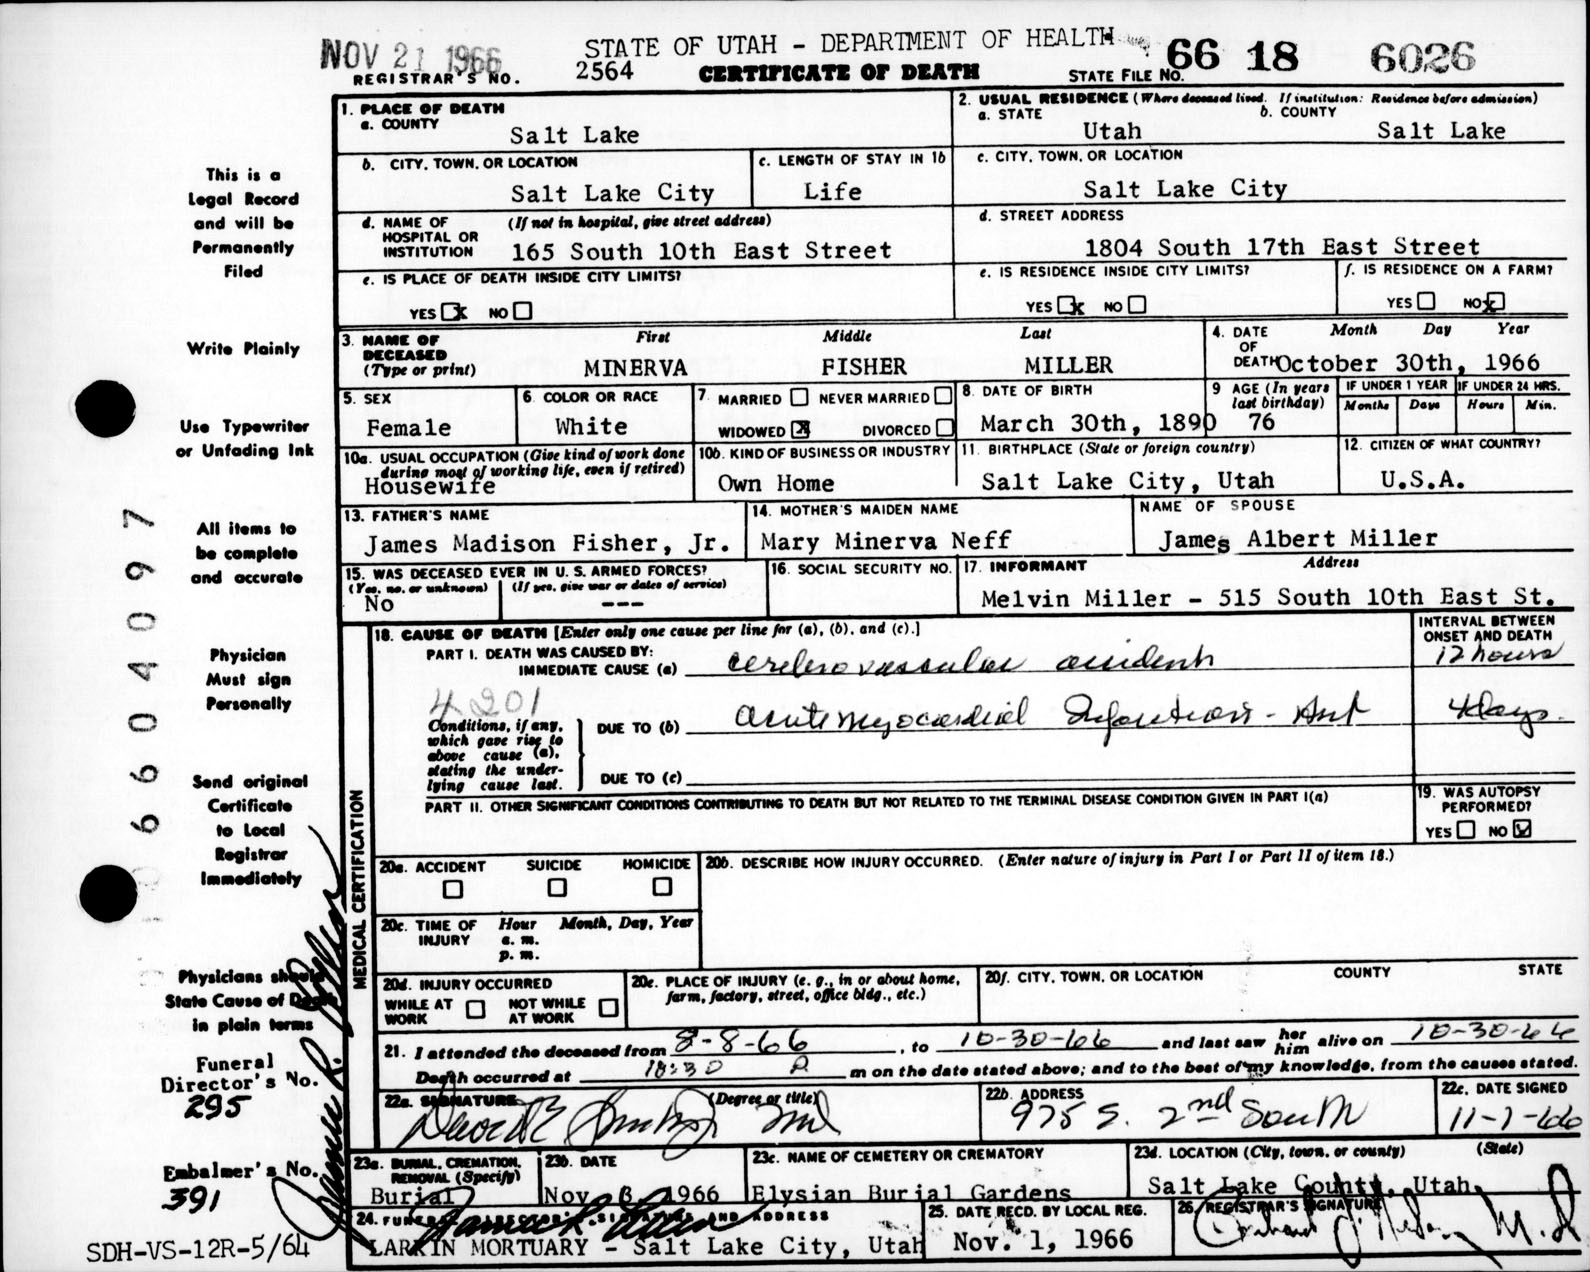 NOV 21 1966
STATE OF UTAH - DEPARTMENT OF HEALTH
66 18 6026
REGISTRAR'S NO. 2564 CERTIFICATE OF DEATH STATE FILE NO.
1. PLACE OF DEATH
a. COUNTY
Salt Lake
2. USUAL RESIDENCE (Where deceased lived. If institution: Residence before admission)
a. STATE b. COUNTY
Utah Salt Lake
b. CITY, TOWN, OR LOCATION
Salt Lake City
c. LENGTH OF STAY IN 1b
Life
c. CITY, TOWN, OR LOCATION
Salt Lake City
d. NAME OF HOSPITAL OR INSTITUTION (If not in hospital, give street address)
165 South 10th East Street
d. STREET ADDRESS
1804 South 17th East Street
e. IS PLACE OF DEATH INSIDE CITY LIMITS?
YES x NO
e. IS RESIDENCE INSIDE CITY LIMITS?
YES x NO
f. IS RESIDENCE ON A FARM?
YES NO x
3. NAME OF DECEASED (Type or print)
First Middle Last
MINERVA FISHER MILLER
4. DATE OF DEATH Month Day Year
October 30th, 1966
5. SEX
Female
6. COLOR OR RACE
White
7. MARRIED NEVER MARRIED
WIDOWED x DIVORCED
8. DATE OF BIRTH
March 30th, 1890
9 AGE (In years last birthday)
76
IF UNDER 1 YEAR IF UNDER 24 HRS.
Months Days Hours Min.
10a. USUAL OCCUPATION (Give kind of work done during most of working life, even if retired)
Housewife
10b. KIND OF BUSINESS OR INDUSTRY
Own Home
11. BIRTHPLACE (State or foreign country)
Salt Lake City, Utah
12. CITIZEN OF WHAT COUNTRY?
U.S.A.
13. FATHER'S NAME
James Madison Fisher, Jr.
14. MOTHER'S MAIDEN NAME
Mary Minerva Neff
NAME OF SPOUSE
James Albert Miller
15. WAS DECEASED EVER IN U. S. ARMED FORCES?
(Yes, no, or unknown) (If yes, give war or dates of service)
No ---
16. SOCIAL SECURITY NO.
17. INFORMANT Address
Melvin Miller - 515 South 10th East St.
MEDICAL CERTIFICATION
18. CAUSE OF DEATH [Enter only one cause per line for (a), (b), and (c).]
INTERVAL BETWEEN ONSET AND DEATH
PART I. DEATH WAS CAUSED BY:
IMMEDIATE CAUSE (a) cerebrovascular accident 12 hours
4201
Conditions, if any, which gave rise to above cause (a), stating the underlying cause last.
DUE TO (b) acute myocardial Infarction - Ant 4 days.
DUE TO (c)
PART II. OTHER SIGNIFICANT CONDITIONS CONTRIBUTING TO DEATH BUT NOT RELATED TO THE TERMINAL DISEASE CONDITION GIVEN IN PART I(a)
19. WAS AUTOPSY PERFORMED?
YES NO
20a. ACCIDENT SUICIDE HOMICIDE
20b. DESCRIBE HOW INJURY OCCURRED. (Enter nature of injury in Part I or Part II of item 18.)
20c. TIME OF INJURY Hour Month, Day, Year
a. m.
p. m.
20d. INJURY OCCURRED
WHILE AT WORK NOT WHILE AT WORK
20e. PLACE OF INJURY (e. g., in or about home, farm, factory, street, office bldg., etc.)
20f. CITY, TOWN, OR LOCATION COUNTY STATE
21. I attended the deceased from 8-8-66, to 10-30-66 and last saw her him alive on 10-30-66
Death occurred at 10:30 P. m on the date stated above; and to the best of my knowledge, from the causes stated.
22a. SIGNATURE (Degree or title)
22b. ADDRESS
22c. DATE SIGNED
975 E. 2nd South
11-1-66
23a. BURIAL, CREMATION, REMOVAL (Specify)
Burial
23b. DATE
Nov. 3, 1966
23c. NAME OF CEMETERY OR CREMATORY
Elysian Burial Gardens
23d. LOCATION (City, town, or county) (State)
Salt Lake County, Utah
24. FUNERAL DIRECTOR'S SIGNATURE AND ADDRESS
LARKIN MORTUARY - Salt Lake City, Utah
25. DATE RECD. BY LOCAL REG.
Nov. 1, 1966
26. REGISTRAR'S SIGNATURE
This is a
Legal Record
and will be
Permanently
Filed
Write Plainly
Use Typewriter
or Unfading Ink
All items to
be complete
and accurate
Physician
Must sign
Personally
Send original
Certificate
to Local
Registrar
Immediately
Physicians should
State Cause of Death
in plain terms
Funeral
Director's No.
295
Embalmer's No.
391
6604097
SDH-VS-12R-5/64